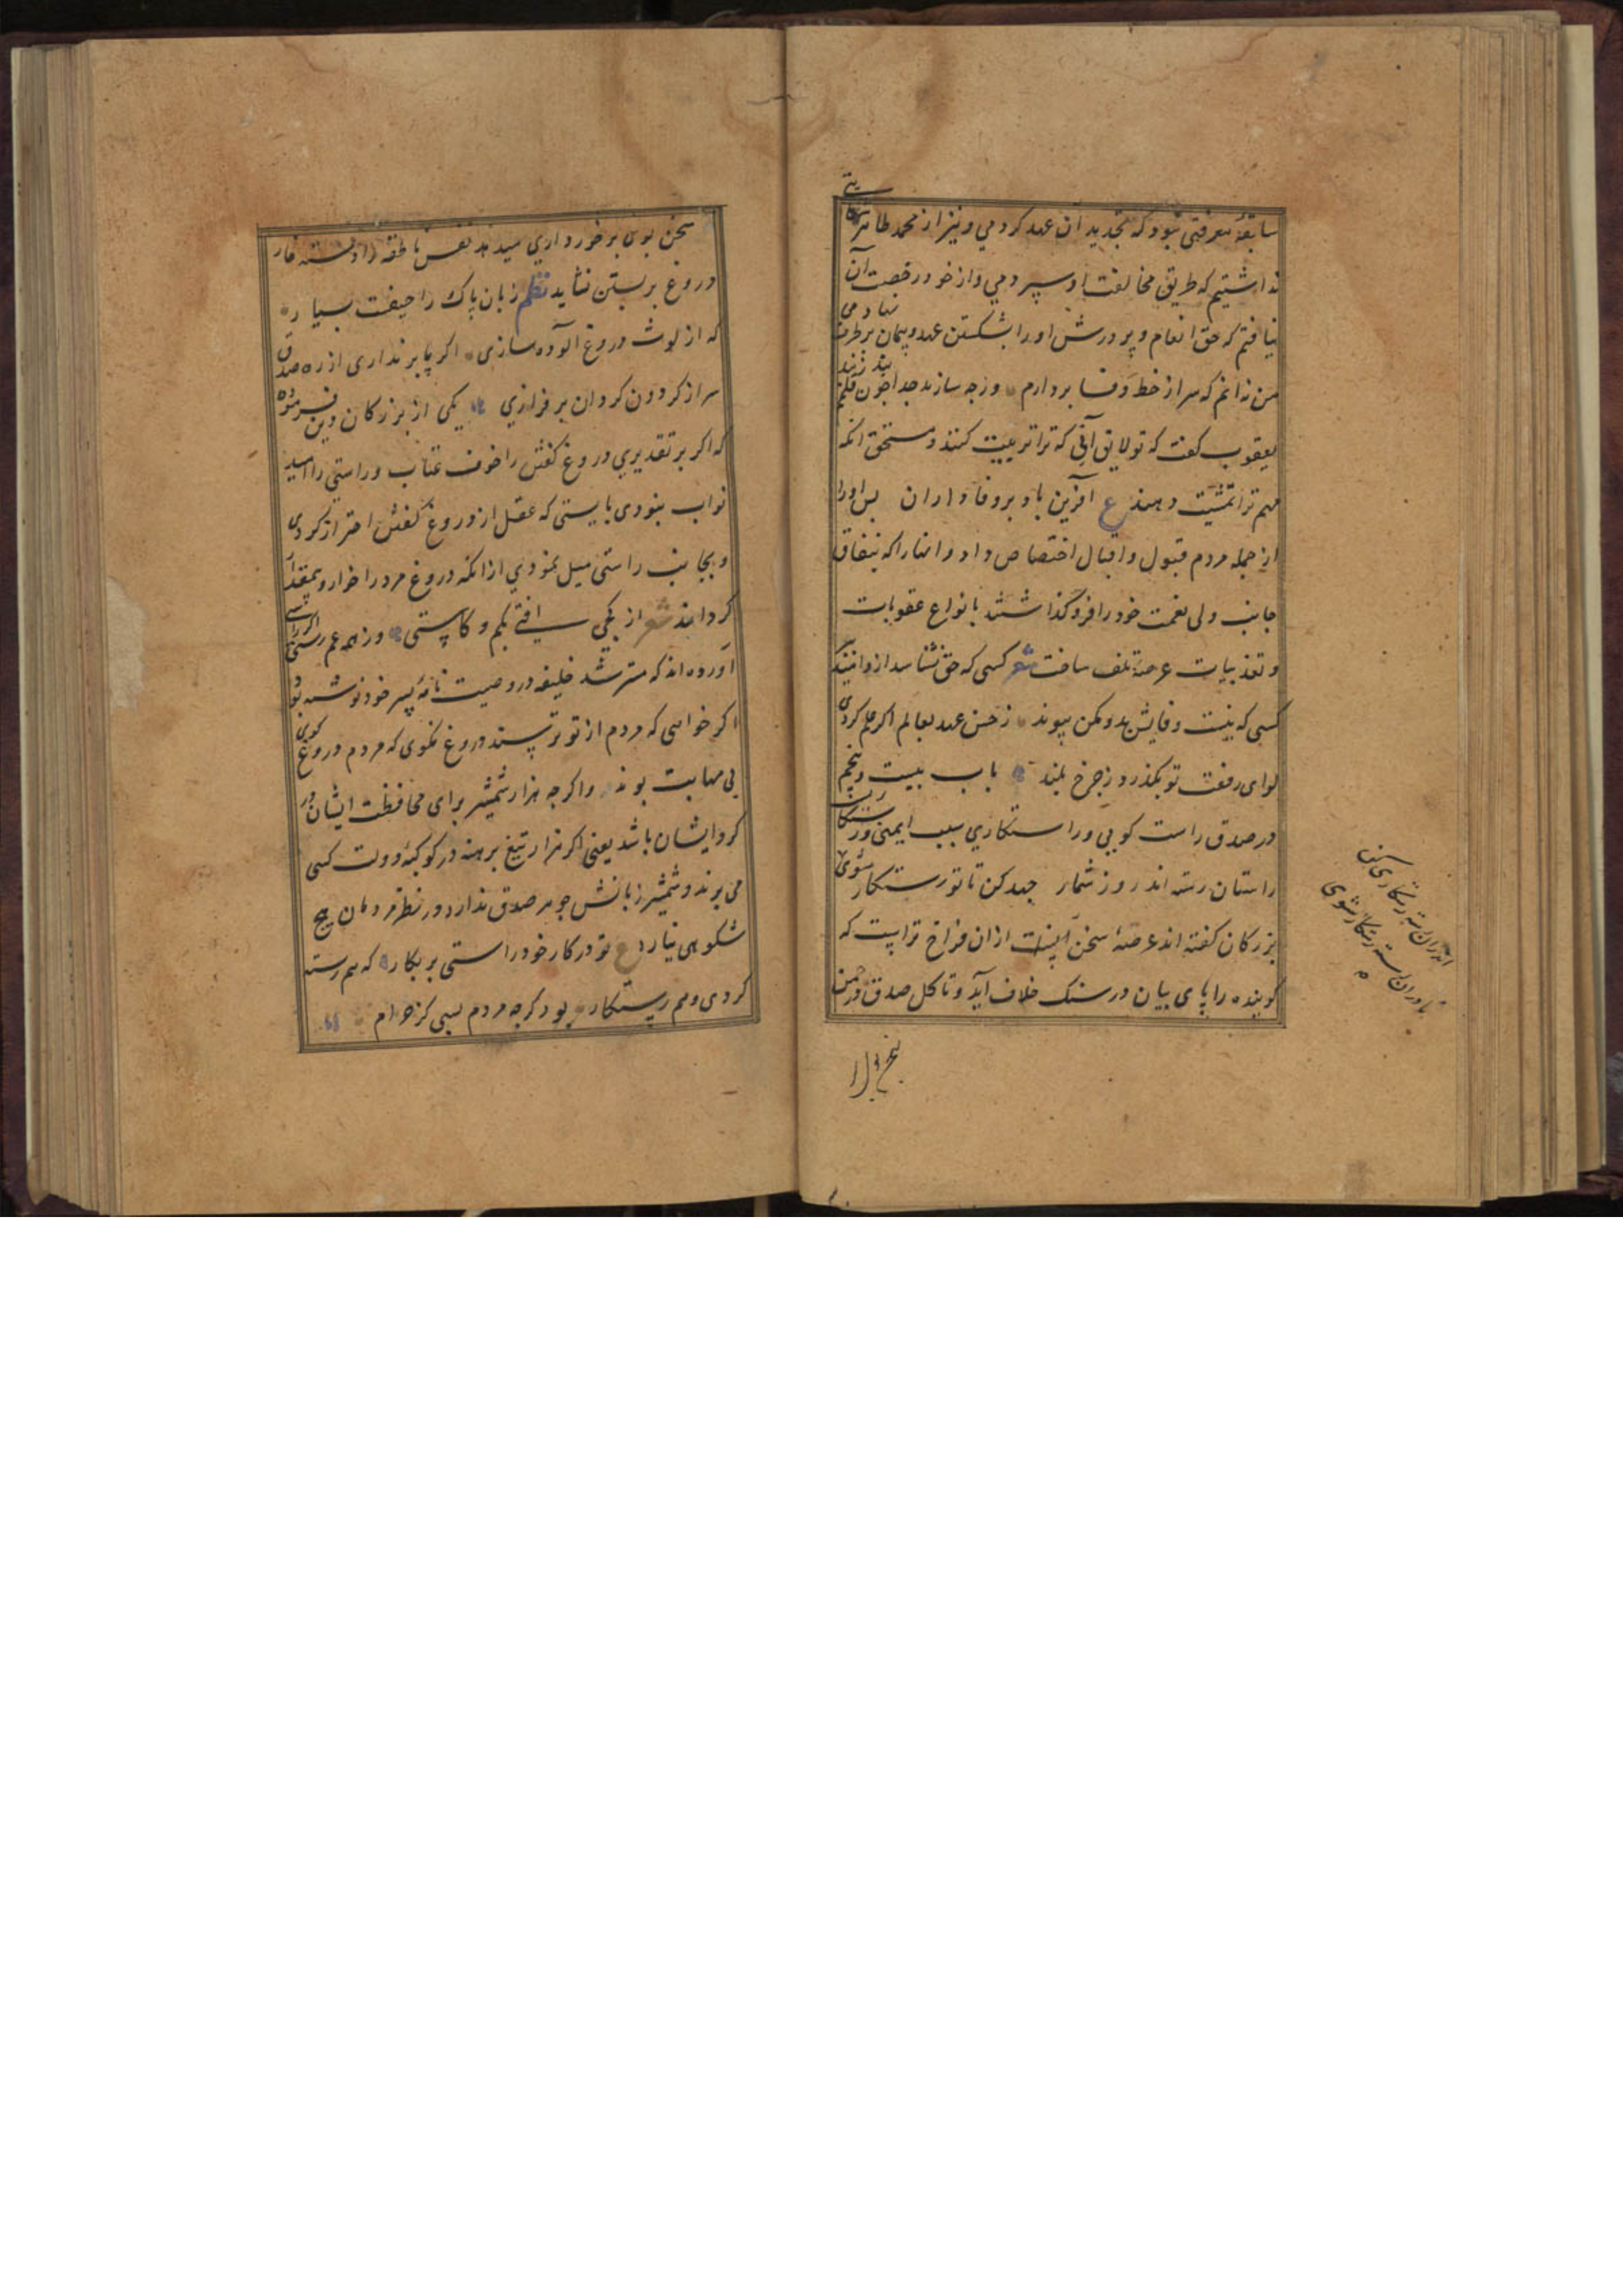 سابقهٔ معرفتی نبود که تجدید آن عهد کردمی و نیز از محمد طاهر شکایتی
نداشتیم که طریق مخالفت او سپردمی و از خود رخصت آن
نیافتم که حق انعام و پرورش او را بشکستن عهد و پیمان برطرف نهادمی
من نه آنم که سر از خط وفا بردارم ور چه سازند جدا چون قلم بند ز بند
یعقوب گفت که تو لایق آنی که ترا تربیت کنند و مستحق آنکه
مهم ترا تمشیت دهند ع آفرین باد بر وفاداران پس او را
از جمله مردم قبول و اقبال اختصاص داد و آنها را که بنفاق
جانب ولی نعمت خود را فروگذاشتند بانواع عقوبات
و تعذیبات عرصهٔ تلف ساخت شعر کسی که حق نشناسد ازو
کسی که نیست وفایش بدو مکن پیوند ز حسن عهد بعالم اگر علم کردی
لوای رفعت تو بگذرد ز چرخ بلند باب بیست و پنجم
در صدق راست کویی و راستکاری سبب ایمنی و رستکاریست
راستان رسته اند روز شمار جهد کن تا تو رستکار شوی
بزرکان کفته اند عرصهٔ سخن از ان فراخ تر است که
کوینده را پای بیان در سنک خلاف آید و تا کل صدق در چمن
اندران رسته رستکاری کن
تا دران رسته رستکار شوی
سخن بوی برخورداری میدهد نفس ناطقه را دسته خار
دروغ بر بستن نشاید نظم زبان پاک را حیفست بسیار
که از لوث دروغ آلوده سازی اکر پا بر نداری از ره صدق
سر از کردون کردان بر فرازی یکی از بزرکان دین فرموده
که اکر بر تقدیری دروغ کفتن را خوف عتاب و راستی را امید
ثواب نبودی بایستی که عقل از دروغ کفتن احتراز کردی
و بجانب راستی میل نمودی از انکه دروغ مرد را خوار و بیمقدار
کرداند شعر از کجی افتی بکم و کاستی و ز همه غم رستی اکر راستی
آورده اند که مسترشد خلیفه در وصیت نامهٔ پسر خود نوشته بود
اکر خواهی که مردم از تو ترسند دروغ مکوی که مردم دروغ کوی
بی مهابت بوند و اکر چه هزار شمشیر برای محافظت ایشان در
کرد ایشان باشد یعنی اکر هزار تیغ برهنه در کوکبهٔ دولت کسی
می برند و شمشیر زبانش جوهر صدق ندارد در نظر مردمان هیچ
شکوهی نیارد ع تو در کار خود راستی بر بکار که هم رسته
کردی و هم رستکار بود کرچه مردم بسی کژ خرام